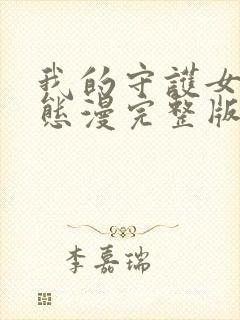 我的守護女
態漫完整版
李嘉瑞